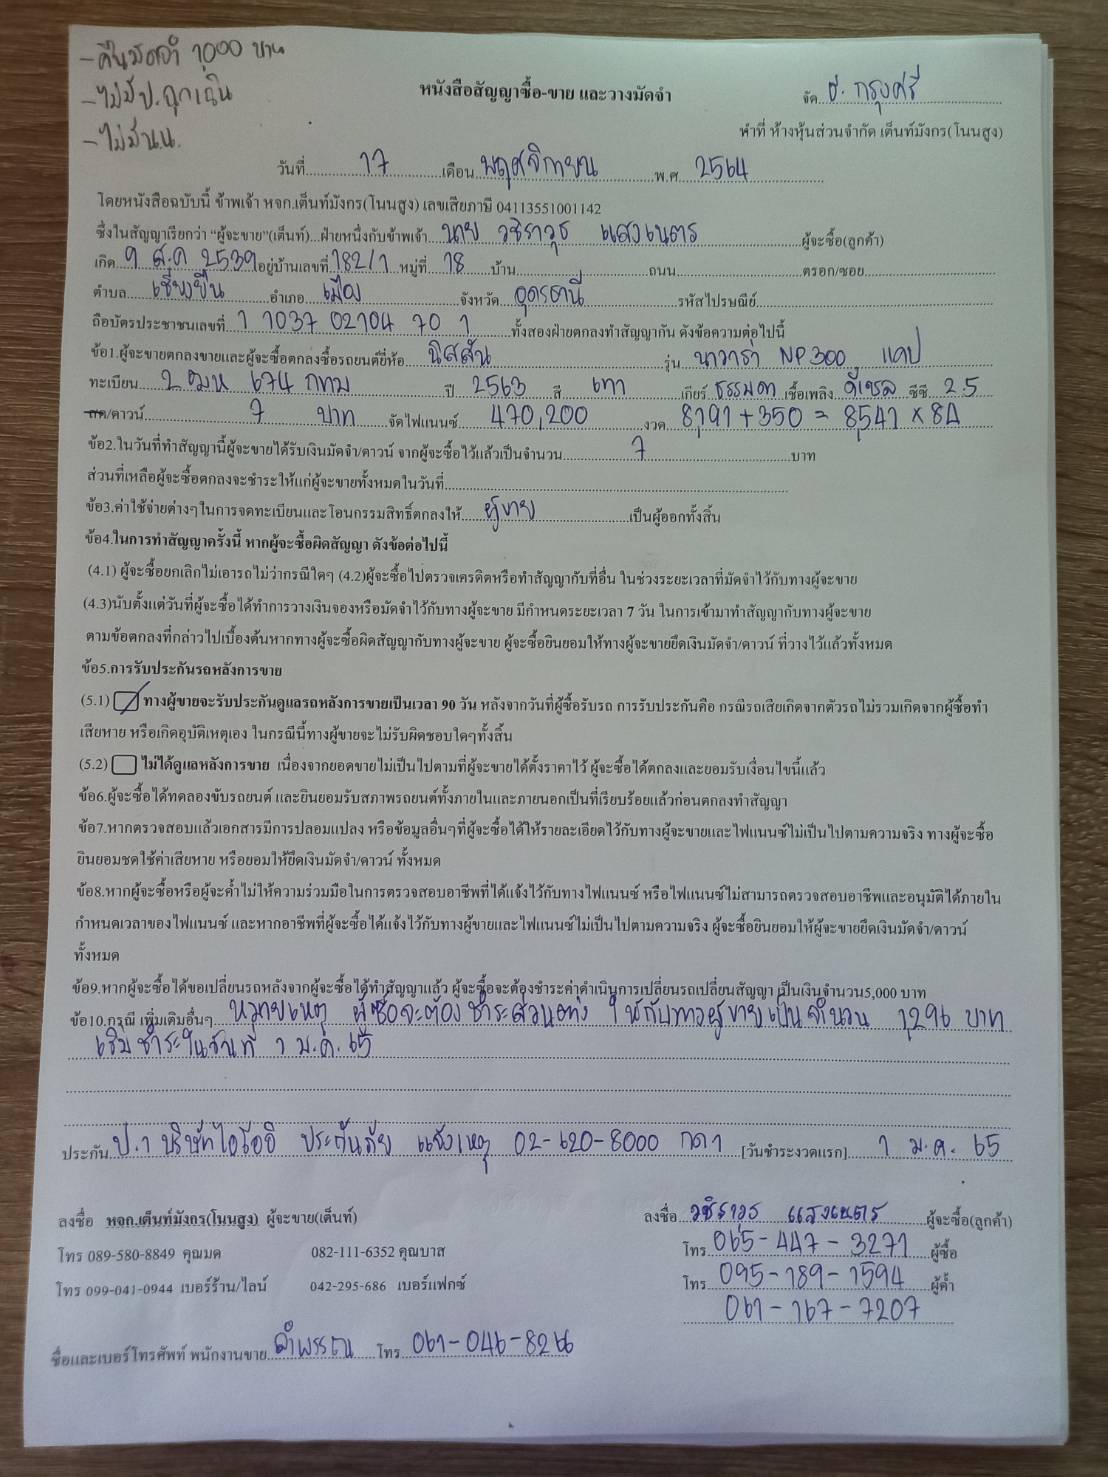 - คืนมัดจำ 1000 บาท
- ไม่มีป.ฉุกเฉิน
- ไม่มีน.น.
หนังสือสัญญาซื้อ-ขาย และวางมัดจำ
จัด ธ. กรุงศรี
ทำที่ ห้างหุ้นส่วนจำกัด เต็นท์มังกร(โนนสูง)
วันที่ 17 เดือน พฤศจิกายน พ.ศ 2564
โดยหนังสือฉบับนี้ ข้าพเจ้า หจก.เต็นท์มังกร(โนนสูง) เลขเสียภาษี 04113551001142
ซึ่งในสัญญาเรียกว่า "ผู้จะขาย"(เต็นท์)...ฝ่ายหนึ่งกับข้าพเจ้า นาย วชิราวุธ แสงเนตร ผู้จะซื้อ(ลูกค้า)
เกิด 9 ส.ค 2539 อยู่บ้านเลขที่ 182/1 หมู่ที่ 18 บ้าน ถนน ตรอก/ซอย
ตำบล เชียงยืน อำเภอ เมือง จังหวัด อุดรธานี รหัสไปรษณีย์
ถือบัตรประชาชนเลขที่ 1 1037 02104 70 1 ทั้งสองฝ่ายตกลงทำสัญญากัน ดังข้อความต่อไปนี้
ข้อ1.ผู้จะขายตกลงขายและผู้จะซื้อตกลงซื้อรถยนต์ยี่ห้อ นิสสัน รุ่น นาวาร่า NP300 แคป
ทะเบียน 2 ฒห 674 กทม ปี 2563 สี เทา เกียร์ ธรรมดา เชื้อเพลิง ดีเซล ซีซี 2.5
สด/ดาวน์ 7 บาท จัดไฟแนนซ์ 470,200 งวด 8,191+350 = 8,541 × 84
ข้อ2.ในวันที่ทำสัญญานี้ผู้จะขายได้รับเงินมัดจำ/ดาวน์ จากผู้จะซื้อไว้แล้วเป็นจำนวน 7 บาท
ส่วนที่เหลือผู้จะซื้อตกลงจะชำระให้แก่ผู้จะขายทั้งหมดในวันที่
ข้อ3.ค่าใช้จ่ายต่างๆในการจดทะเบียนและโอนกรรมสิทธิ์ตกลงให้ ผู้ขาย เป็นผู้ออกทั้งสิ้น
ข้อ4.ในการทำสัญญาครั้งนี้ หากผู้จะซื้อผิดสัญญา ดังข้อต่อไปนี้
(4.1) ผู้จะซื้อยกเลิกไม่เอารถไม่ว่ากรณีใดๆ (4.2)ผู้จะซื้อไปตรวจเครดิตหรือทำสัญญากับที่อื่น ในช่วงระยะเวลาที่มัดจำไว้กับทางผู้จะขาย
(4.3)นับตั้งแต่วันที่ผู้จะซื้อได้ทำการวางเงินจองหรือมัดจำไว้กับทางผู้จะขาย มีกำหนดระยะเวลา 7 วัน ในการเข้ามาทำสัญญากับทางผู้จะขาย
ตามข้อตกลงที่กล่าวไปเบื้องต้นหากทางผู้จะซื้อผิดสัญญากับทางผู้จะขาย ผู้จะซื้อยินยอมให้ทางผู้จะขายยึดเงินมัดจำ/ดาวน์ ที่วางไว้แล้วทั้งหมด
ข้อ5.การรับประกันรถหลังการขาย
(5.1) ทางผู้ขายจะรับประกันดูแลรถหลังการขายเป็นเวลา 90 วัน หลังจากวันที่ผู้ซื้อรับรถ การรับประกันคือ กรณีรถเสียเกิดจากตัวรถไม่รวมเกิดจากผู้ซื้อทำ
เสียหาย หรือเกิดอุบัติเหตุเอง ในกรณีนี้ทางผู้ขายจะไม่รับผิดชอบใดๆทั้งสิ้น
(5.2) ไม่ได้ดูแลหลังการขาย เนื่องจากยอดขายไม่เป็นไปตามที่ผู้จะขายได้ตั้งราคาไว้ ผู้จะซื้อได้ตกลงและยอมรับเงื่อนไขนี้แล้ว
ข้อ6.ผู้จะซื้อได้ทดลองขับรถยนต์ และยินยอมรับสภาพรถยนต์ทั้งภายในและภายนอกเป็นที่เรียบร้อยแล้วก่อนตกลงทำสัญญา
ข้อ7.หากตรวจสอบแล้วเอกสารมีการปลอมแปลง หรือข้อมูลอื่นๆที่ผู้จะซื้อได้ให้รายละเอียดไว้กับทางผู้จะขายและไฟแนนซ์ไม่เป็นไปตามความจริง ทางผู้จะซื้อ
ยินยอมชดใช้ค่าเสียหาย หรือยอมให้ยึดเงินมัดจำ/ดาวน์ ทั้งหมด
ข้อ8.หากผู้จะซื้อหรือผู้จะค้ำไม่ให้ความร่วมมือในการตรวจสอบอาชีพที่ได้แจ้งไว้กับทางไฟแนนซ์ หรือไฟแนนซ์ไม่สามารถตรวจสอบอาชีพและอนุมัติได้ภายใน
กำหนดเวลาของไฟแนนซ์ และหากอาชีพที่ผู้จะซื้อได้แจ้งไว้กับทางผู้ขายและไฟแนนซ์ไม่เป็นไปตามความจริง ผู้จะซื้อยินยอมให้ผู้จะขายยึดเงินมัดจำ/ดาวน์
ทั้งหมด
ข้อ9.หากผู้จะซื้อได้ขอเปลี่ยนรถหลังจากผู้จะซื้อได้ทำสัญญาแล้ว ผู้จะซื้อจะต้องชำระค่าดำเนินการเปลี่ยนรถเปลี่ยนสัญญา เป็นเงินจำนวน5,000 บาท
ข้อ10.กรณี เพิ่มเติมอื่นๆ หมายเหตุ ผู้ซื้อจะต้องชำระส่วนต่าง ให้กับทางผู้ขายเป็นจำนวน 1,296 บาท
เริ่มชำระในวันที่ 1 ม.ค. 65
ประกัน ป.1 บริษัทไอโออิ ประกันภัย แจ้งเหตุ 02-620-8000 กด1 [วันชำระงวดแรก] 1 ม.ค. 65
ลงชื่อ หจก.เต็นท์มังกร(โนนสูง) ผู้จะขาย(เต็นท์)
ลงชื่อ วชิราวุธ แสงเนตร ผู้จะซื้อ(ลูกค้า)
โทร 089-580-8849 คุณมด 082-111-6352 คุณบาส
โทร 065-447-3271 ผู้ซื้อ
โทร 099-041-0944 เบอร์ร้าน/ไลน์ 042-295-686 เบอร์แฟกซ์
โทร 095-189-1594 ผู้ค้ำ
061-167-7207
ชื่อและเบอร์โทรศัพท์ พนักงานขาย ลำพรรณ โทร 061-046-8266